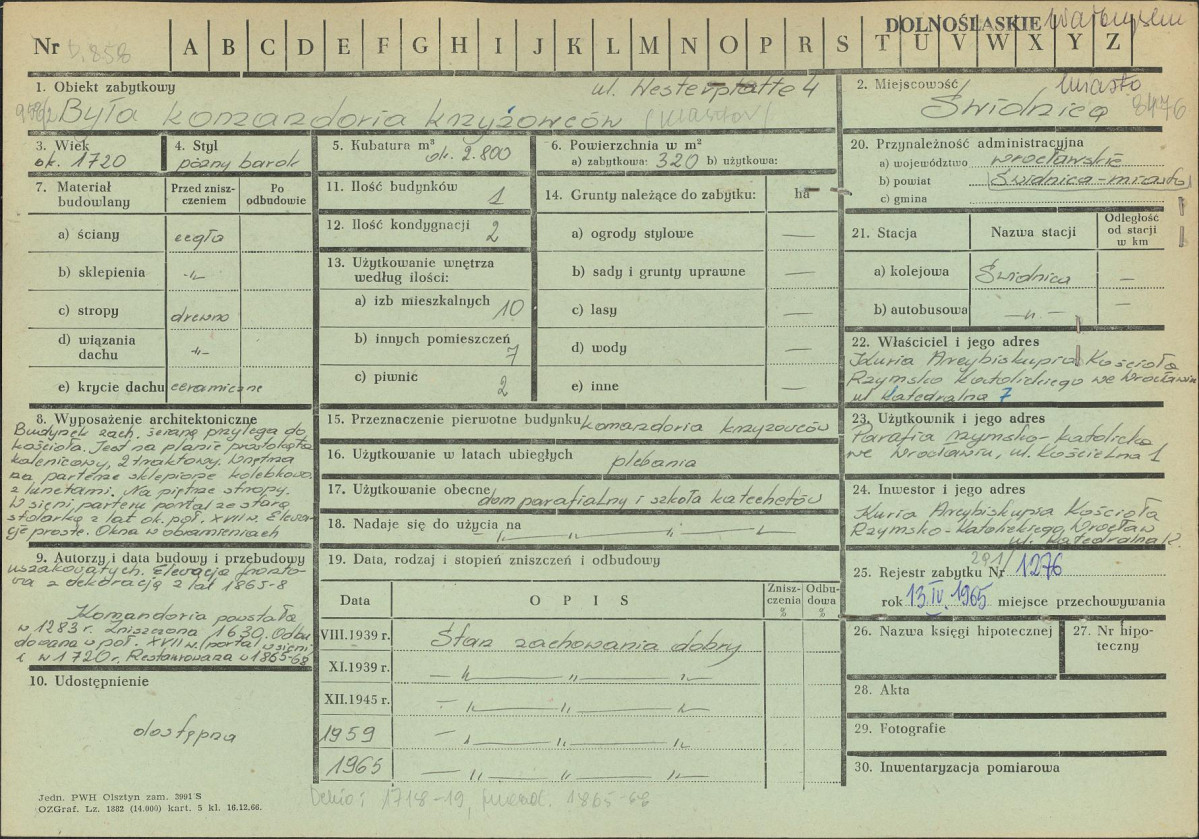 DOLNOŚLĄSKIE Wałbrzych
Nr b. 858 A B C D E F G H I J K L M N O P R S T U V W X Y Z
1. Obiekt zabytkowy ul. Westerplatte 4
958/2 Była komandoria krzyżowców (klasztor)
2. Miejscowość miasto
Świdnica 8476
3. Wiek
ok. 1720
4. Styl
późny barok
5. Kubatura m³ ok. 2.800
6. Powierzchnia w m²
a) zabytkowa: 320 b) użytkowa:
20. Przynależność administracyjna
a) województwo wrocławskie
b) powiat Świdnica-miasto
c) gmina
7. Materiał budowlany
Przed zniszczeniem
Po odbudowie
a) ściany cegła
b) sklepienia -"-
c) stropy drewno
d) wiązania dachu -"-
e) krycie dachu ceramiczne
11. Ilość budynków 1
12. Ilość kondygnacji 2
13. Użytkowanie wnętrza
według ilości:
a) izb mieszkalnych 10
b) innych pomieszczeń 7
c) piwnic 2
14. Grunty należące do zabytku: ha
a) ogrody stylowe —
b) sady i grunty uprawne —
c) lasy —
d) wody —
e) inne —
21. Stacja
Nazwa stacji
Odległość od stacji w km
a) kolejowa Świdnica —
b) autobusowa —"— —
22. Właściciel i jego adres
Kuria Arcybiskupia Kościoła
Rzymsko Katolickiego we Wrocławiu
ul Katedralna 7
8. Wyposażenie architektoniczne
Budynek zach. ścianą przylega do
kościoła. Jest na planie prostokąta
kalenicowy, 2 traktowy. Wnętrza
na parterze sklepione kolebkowo
z lunetami. Na piętrze stropy.
W sieni parteru portal ze starą
stolarką z lat ok. poł. XVII w. Elewa-
cje proste. Okna w obramieniach
9. Autorzy i data budowy i przebudowy
uszakowatych. Elewacja fronto-
wa z dekoracją z lat 1865-8
Komandoria powstała
w 1283 r. Zniszczona 1630. Odbu
dowana w poł. XVII w. (portal w sieni)
i w 1720 r. Restaurowana w 1865-68
10. Udostępnienie
dostępna
15. Przeznaczenie pierwotne budynku komandoria krzyżowców
16. Użytkowanie w latach ubiegłych plebania
17. Użytkowanie obecne dom parafialny i szkoła katechetów
18. Nadaje się do użycia na —"—"—"—
19. Data, rodzaj i stopień zniszczeń i odbudowy
Data
O P I S
Zniszczenia %
Odbudowa %
VIII.1939 r. Stan zachowania dobry
XI.1939 r. —"—"—"—
XII.1945 r. —"—"—"—
1959 —"—"—"—
1965 —"—"—"—
23. Użytkownik i jego adres
Parafia rzymsko-katolicka
we Wrocławiu, ul. Kościelna 1
24. Inwestor i jego adres
Kuria Arcybiskupia Kościoła
Rzymsko-Katolickiego Wrocław
ul. Katedralna
25. Rejestr zabytku Nr 291/ 1276
rok 13. IV. 1965 miejsce przechowywania
26. Nazwa księgi hipotecznej
27. Nr hipoteczny
28. Akta
29. Fotografie
30. Inwentaryzacja pomiarowa
Jedn. PWH Olsztyn zam. 3991 S
OZGraf. Lz. 1882 (14.000) kart. 5 kl. 16.12.66.
Dehio: 1718-19, 1865-68